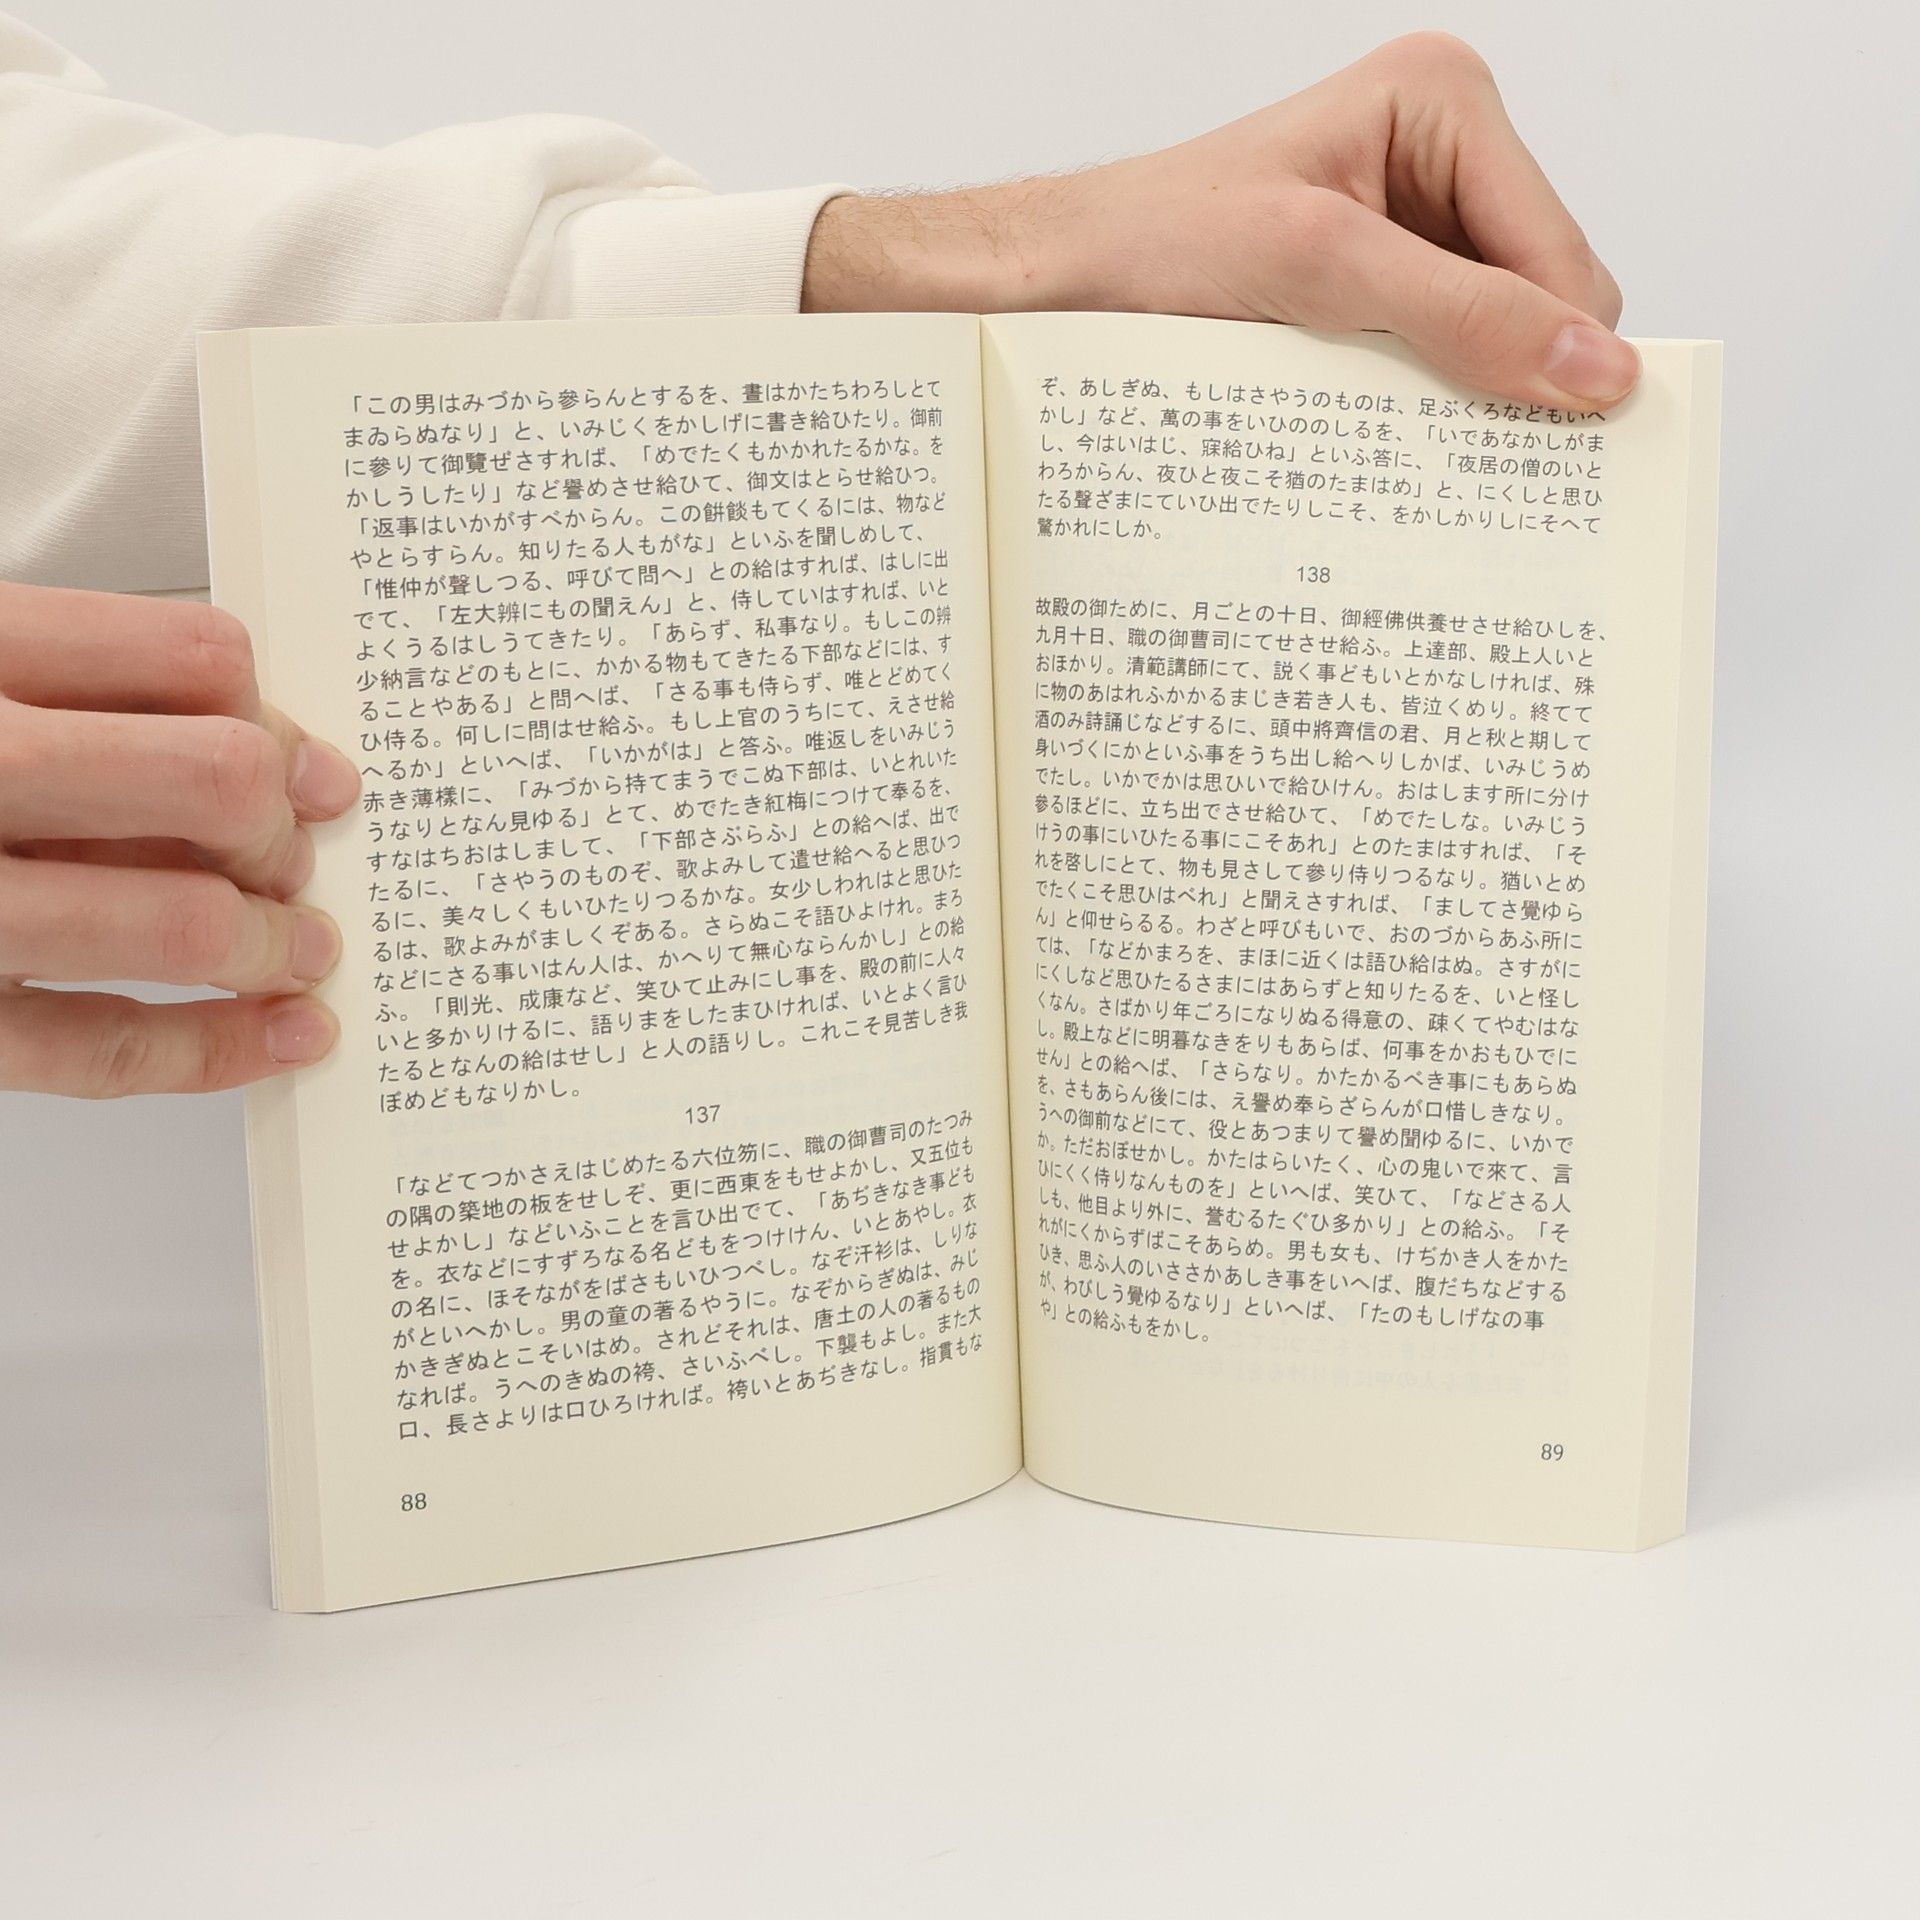 「この男はみづから參らんとするを、晝はかたちわろしとて
まゐらぬなり」と、いみじくをかしげに書き給ひたり。御前
に參りて御覽ぜさすれば、「めでたくもかかれたるかな。を
かしうしたり」など譽めさせ給ひて、御文はとらせ給ひつ。
「返事はいかがすべからん。この餠餤もてくるには、物など
やとらすらん。知りたる人もがな」といふを聞しめして、
「惟仲が聲しつる、呼びて問へ」との給はすれば、はしに出
でて、「左大辨にもの聞えん」と、侍していはすれば、いと
よくうるはしうてきたり。「あらず、私事なり。もしこの辨
少納言などのもとに、かかる物もてきたる下部などには、す
ることやある」と問へば、「さる事も侍らず、唯とどめてく
ひ侍る。何しに問はせ給ふ。もし上官のうちにて、えさせ給
へるか」といへば、「いかがは」と答ふ。唯返しをいみじう
赤き薄樣に、「みづから持てまうでこぬ下部は、いとれいた
うなりとなん見ゆる」とて、めでたき紅梅につけて奉るを、
すなはちおはしまして、「下部さぶらふ」との給へば、出で
たるに、「さやうのものぞ、歌よみして遣せ給へると思ひつ
るに、美々しくもいひたりつるかな。女少しわれはと思ひた
るは、歌よみがましくぞある。さらぬこそ語ひよけれ。まろ
などにさる事いはん人は、かへりて無心ならんかし」との給
ふ。「則光、成康など、笑ひて止みにし事を、殿の前に人々
いと多かりけるに、語りまをしたまひければ、いとよく言ひ
たるとなんの給はせし」と人の語りし。これこそ見苦しき我
ぼめどもなりかし。
137
「などてつかさえはじめたる六位笏に、職の御曹司のたつみ
の隅の築地の板をせしぞ、更に西東をもせよかし、又五位も
せよかし」などいふことを言ひ出でて、「あぢきなき事ども
を。衣などにすずろなる名どもをつけけん、いとあやし。衣
の名に、ほそながをばさもいひつべし。なぞ汗衫は、しりな
がといへかし。男の童の著るやうに。なぞからぎぬは、みじ
かきぎぬとこそいはめ。されどそれは、唐土の人の著るもの
なれば。うへのきぬの袴、さいふべし。下襲もよし。また大
口、長さよりは口ひろければ。袴いとあぢきなし。指貫もな
88
ぞ、あしぎぬ、もしはさやうのものは、足ぶくろなどもいへ
かし」など、萬の事をいひののしるを、「いであなかしがま
し、今はいはじ、寐給ひね」といふ答に、「夜居の僧のいと
わろからん、夜ひと夜こそ猶のたまはめ」と、にくしと思ひ
たる聲ざまにていひ出でたりしこそ、をかしかりしにそへて
驚かれにしか。
138
故殿の御ために、月ごとの十日、御經佛供養せさせ給ひしを、
九月十日、職の御曹司にてせさせ給ふ。上達部、殿上人いと
おほかり。清範講師にて、説く事どもいとかなしければ、殊
に物のあはれふかかるまじき若き人も、皆泣くめり。終てて
酒のみ詩誦じなどするに、頭中將齊信の君、月と秋と期して
身いづくにかといふ事をうち出し給へりしかば、いみじうめ
でたし。いかでかは思ひいで給ひけん。おはします所に分け
參るほどに、立ち出でさせ給ひて、「めでたしな。いみじう
けうの事にいひたる事にこそあれ」とのたまはすれば、「そ
れを啓しにとて、物も見さして參り侍りつるなり。猶いとめ
でたくこそ思ひはべれ」と聞えさすれば、「ましてさ覺ゆら
ん」と仰せらるる。わざと呼びもいで、おのづからあふ所に
ては、「などかまろを、まほに近くは語ひ給はぬ。さすがに
にくしなど思ひたるさまにはあらずと知りたるを、いと怪し
くなん。さばかり年ごろになりぬる得意の、疎くてやむはな
し。殿上などに明暮なきをりもあらば、何事をかおもひでに
せん」との給へば、「さらなり。かたかるべき事にもあらぬ
を、さもあらん後には、え譽め奉らざらんが口惜しきなり。
うへの御前などにて、役とあつまりて譽め聞ゆるに、いかで
か。ただおぼせかし。かたはらいたく、心の鬼いで來て、言
ひにくく侍りなんものを」といへば、笑ひて、「などさる人
しも、他目より外に、誉むるたぐひ多かり」との給ふ。「そ
れがにくからずばこそあらめ。男も女も、けぢかき人をかた
ひき、思ふ人のいささかあしき事をいへば、腹だちなどする
が、わびしう覺ゆるなり」といへば、「たのもしげなの事
や」との給ふもをかし。
89